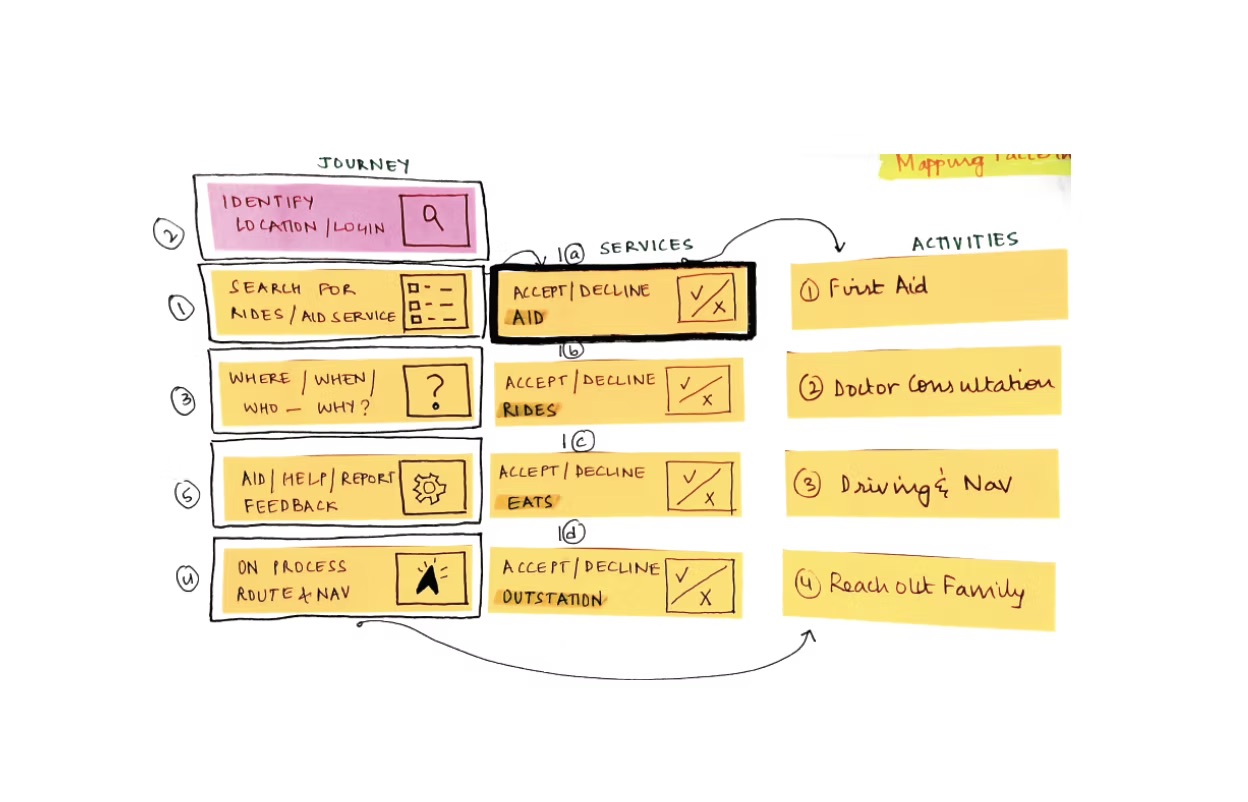 JOURNEY
Mapping
IDENTIFY
LOCATION/LOGIN
2
1a SERVICES
ACTIVITIES
SEARCH FOR
RIDES/AID SERVICE
1
ACCEPT/DECLINE
AID
1 First Aid
1b
WHERE/WHEN/
WHO - WHY?
?
3
ACCEPT/DECLINE
RIDES
2 Doctor Consultation
1c
AID/HELP/REPORT
FEEDBACK
5
ACCEPT/DECLINE
EATS
3 Driving & Nav
1d
ON PROCESS
ROUTE & NAV
4
ACCEPT/DECLINE
OUTSTATION
4 Reach out Family